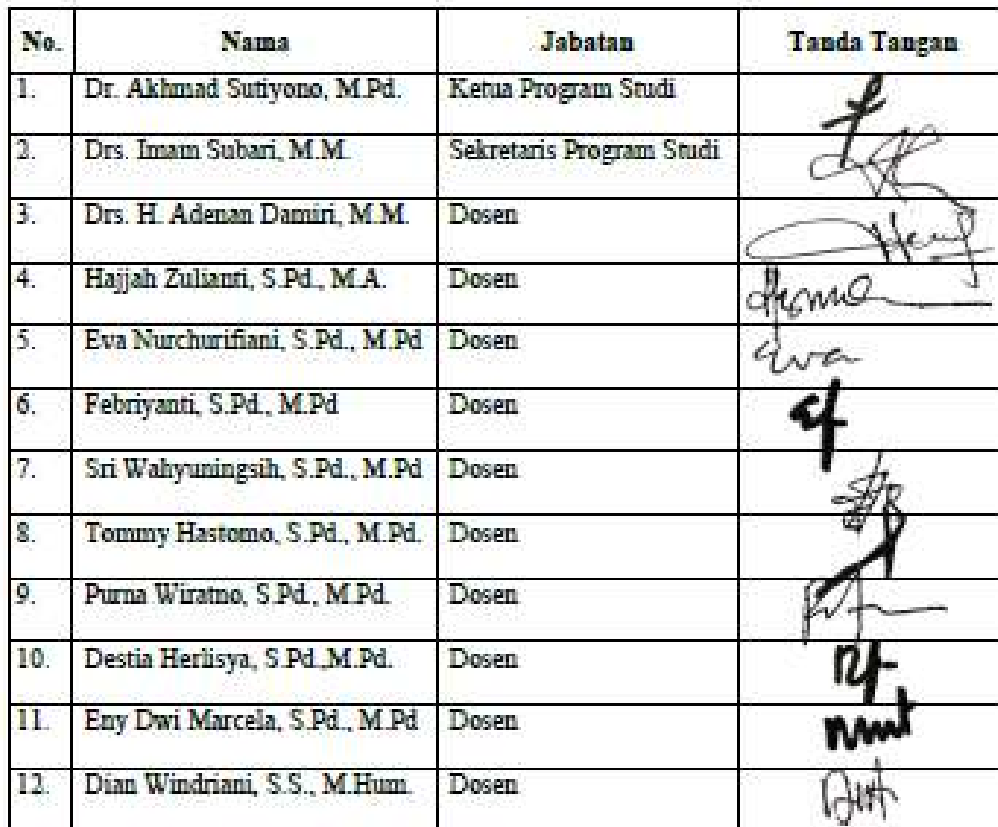 No. Nama Jabatan Tanda Tangan
1. Dr. Akhmad Sutiyono, M.Pd. Ketua Program Studi
2. Drs. Imam Subari, M.M. Sekretaris Program Studi
3. Drs. H. Adenan Damiri, M.M. Dosen
4. Hajjah Zulianti, S.Pd., M.A. Dosen
5. Eva Nurchurifiani, S.Pd., M.Pd Dosen Eva
6. Febriyanti, S.Pd., M.Pd Dosen
7. Sri Wahyuningsih, S.Pd., M.Pd Dosen
8. Tommy Hastomo, S.Pd., M.Pd. Dosen
9. Purna Wiratno, S.Pd., M.Pd. Dosen
10. Destia Herlisya, S.Pd.,M.Pd. Dosen
11. Eny Dwi Marcela, S.Pd., M.Pd Dosen
12. Dian Windriani, S.S., M.Hum. Dosen